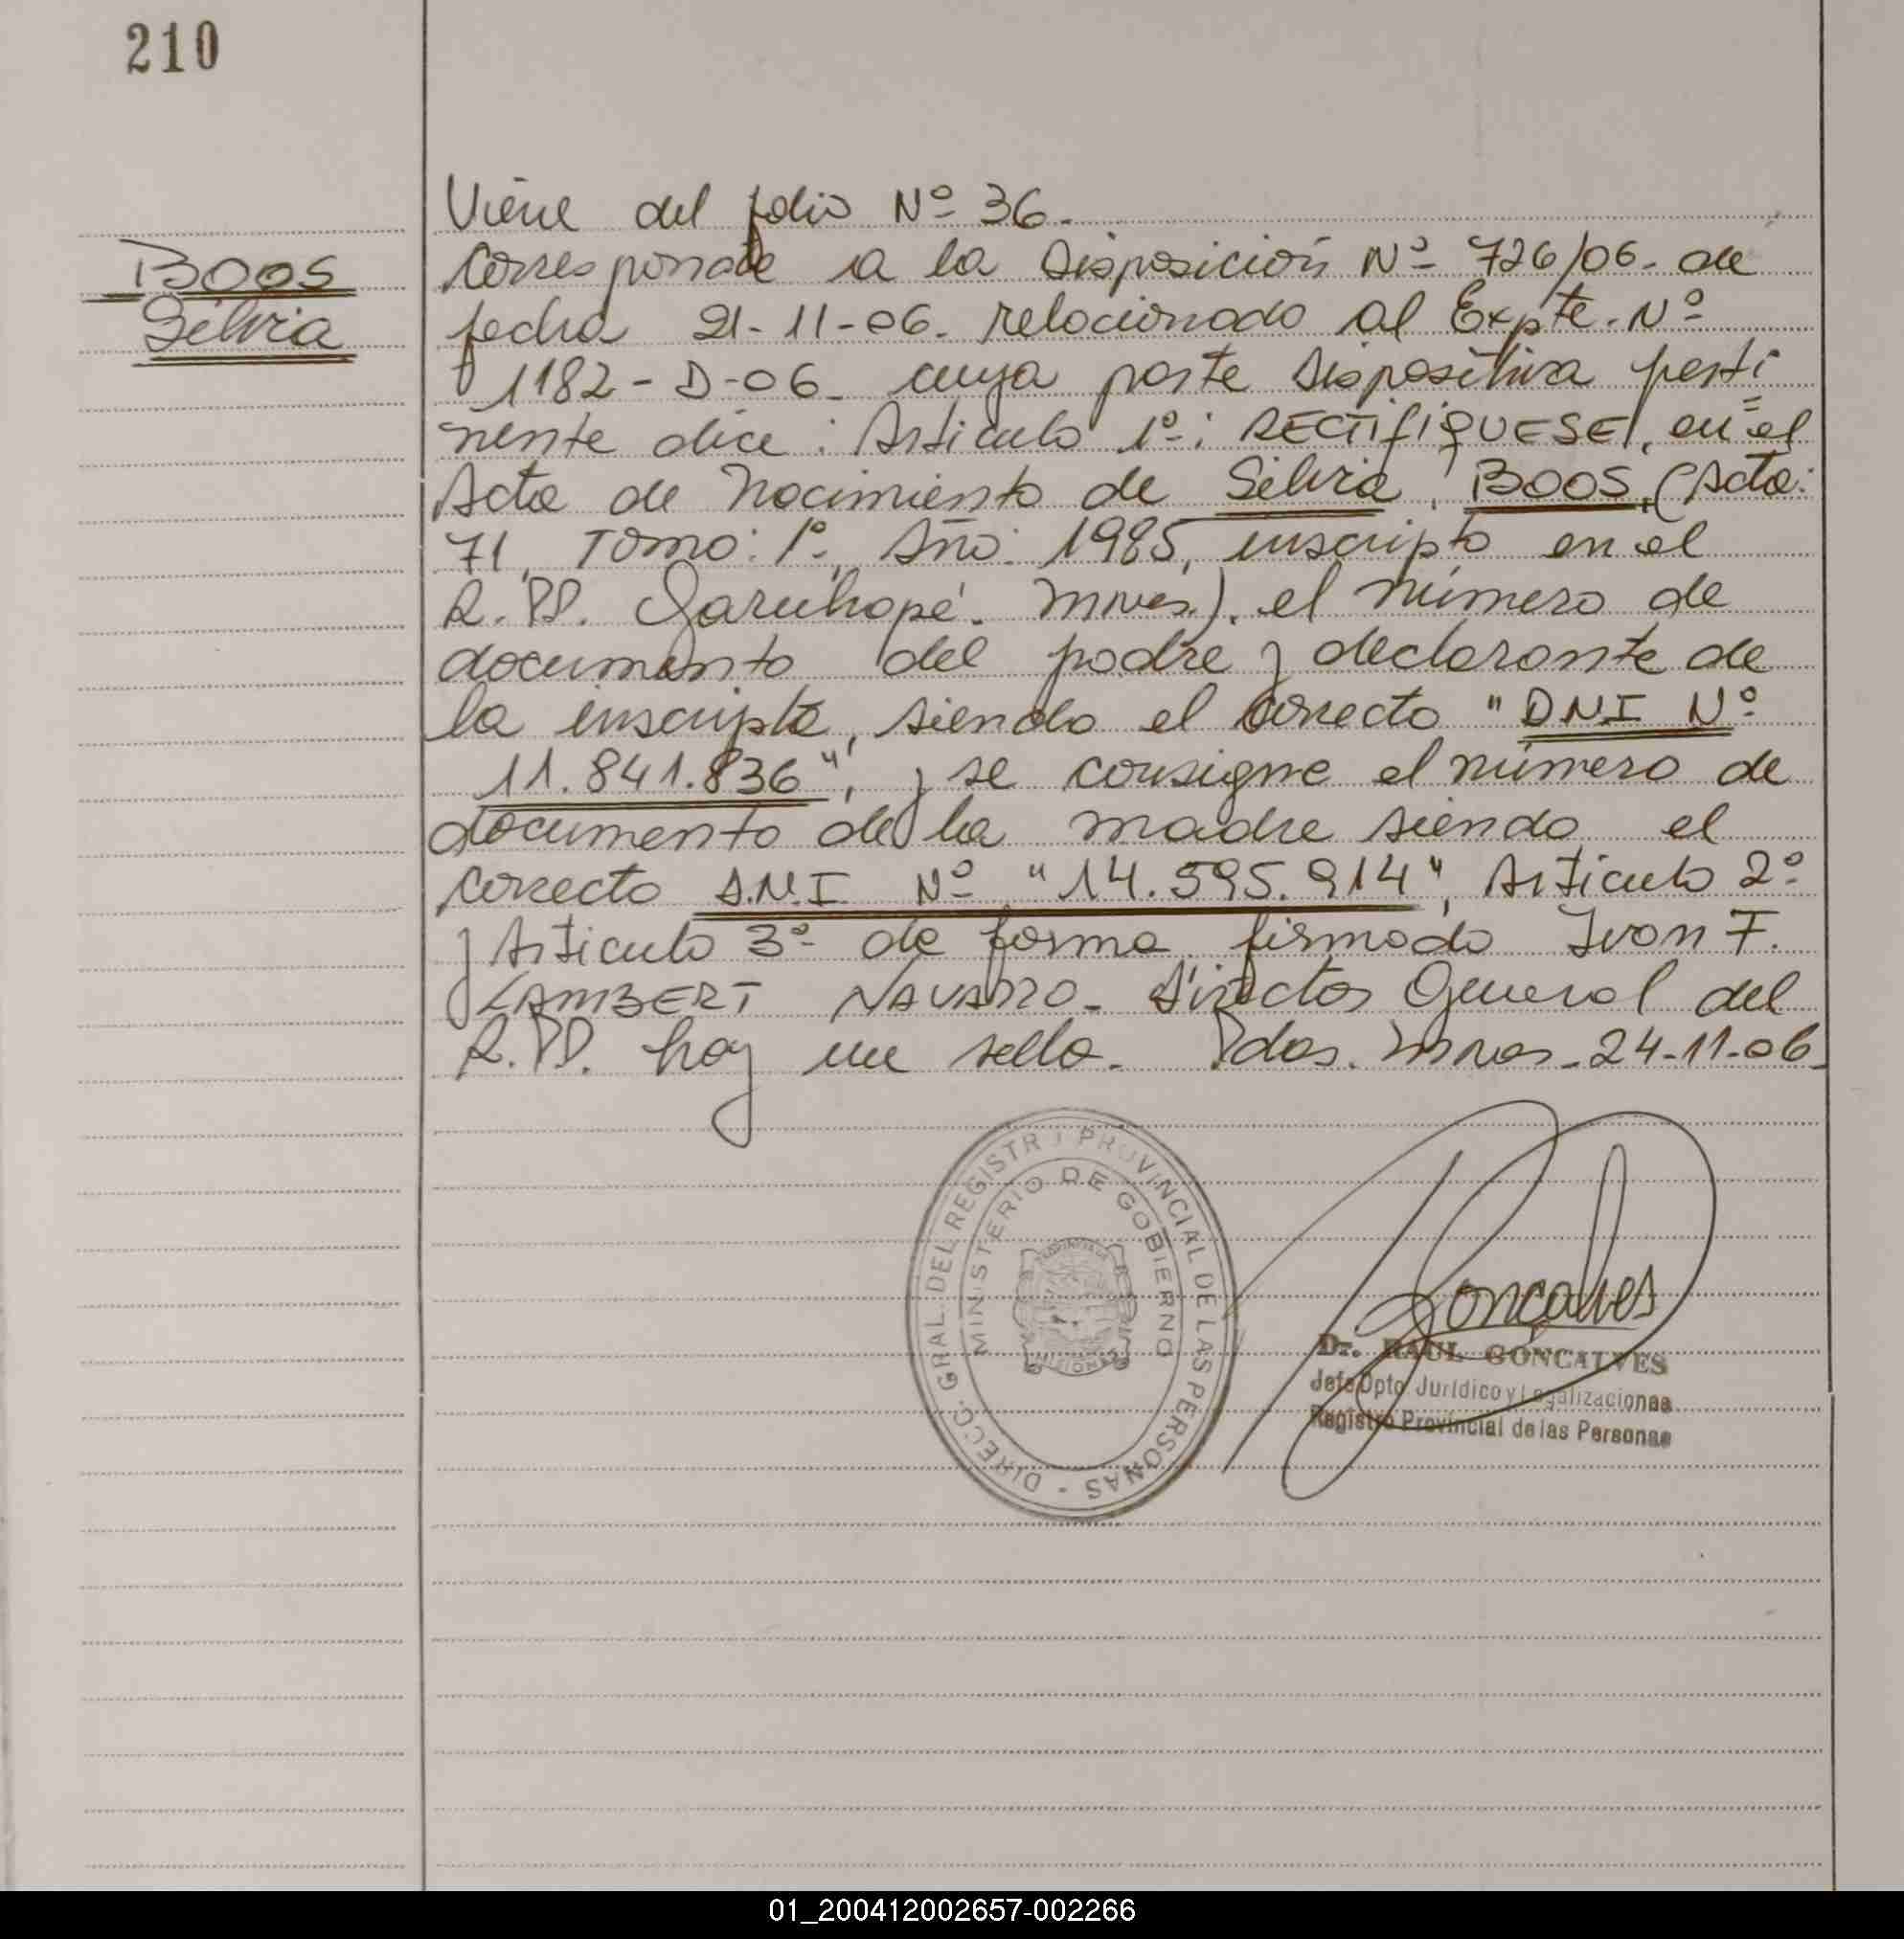 210
BOOS
Silvia
Viene del folio Nº 36.
Corresponde a la Disposición Nº 726/06. de
fecha 21-11-06. relacionado al Expte. Nº
1182-D-06. cuya parte dispositiva perti
nente dice: Articulo 1º: RECTIFIQUESE, en el
Acta de Nacimiento de Silvia, BOOS, (Acta:
71, Tomo: 1º, Año: 1985, inscripto en el
R.P.P. Garuhapé. Mnes.). el número de
documento del padre y declarante de
la inscripta, siendo el correcto "DNI Nº
11.841.836", y se consigne el número de
documento de la madre siendo el
correcto D.N.I. Nº "14.595.914", Articulo 2º
y Articulo 3º de forma firmado Ivon F.
LAMBERT NAVARRO. Director General del
R.P.P. hay un sello. Pdas. Mnes. 24-11-06
DIRECC. GRAL. DEL REGISTRO PROVINCIAL DE LAS PERSONAS -
MINISTERIO DE GOBIERNO
PROVINCIA DE
MISIONES
Goncalves
Dr. RAUL GONCALVES
Jefe Dpto. Jurídico y Legalizaciones
Registro Provincial de las Personas
01_200412002657-002266